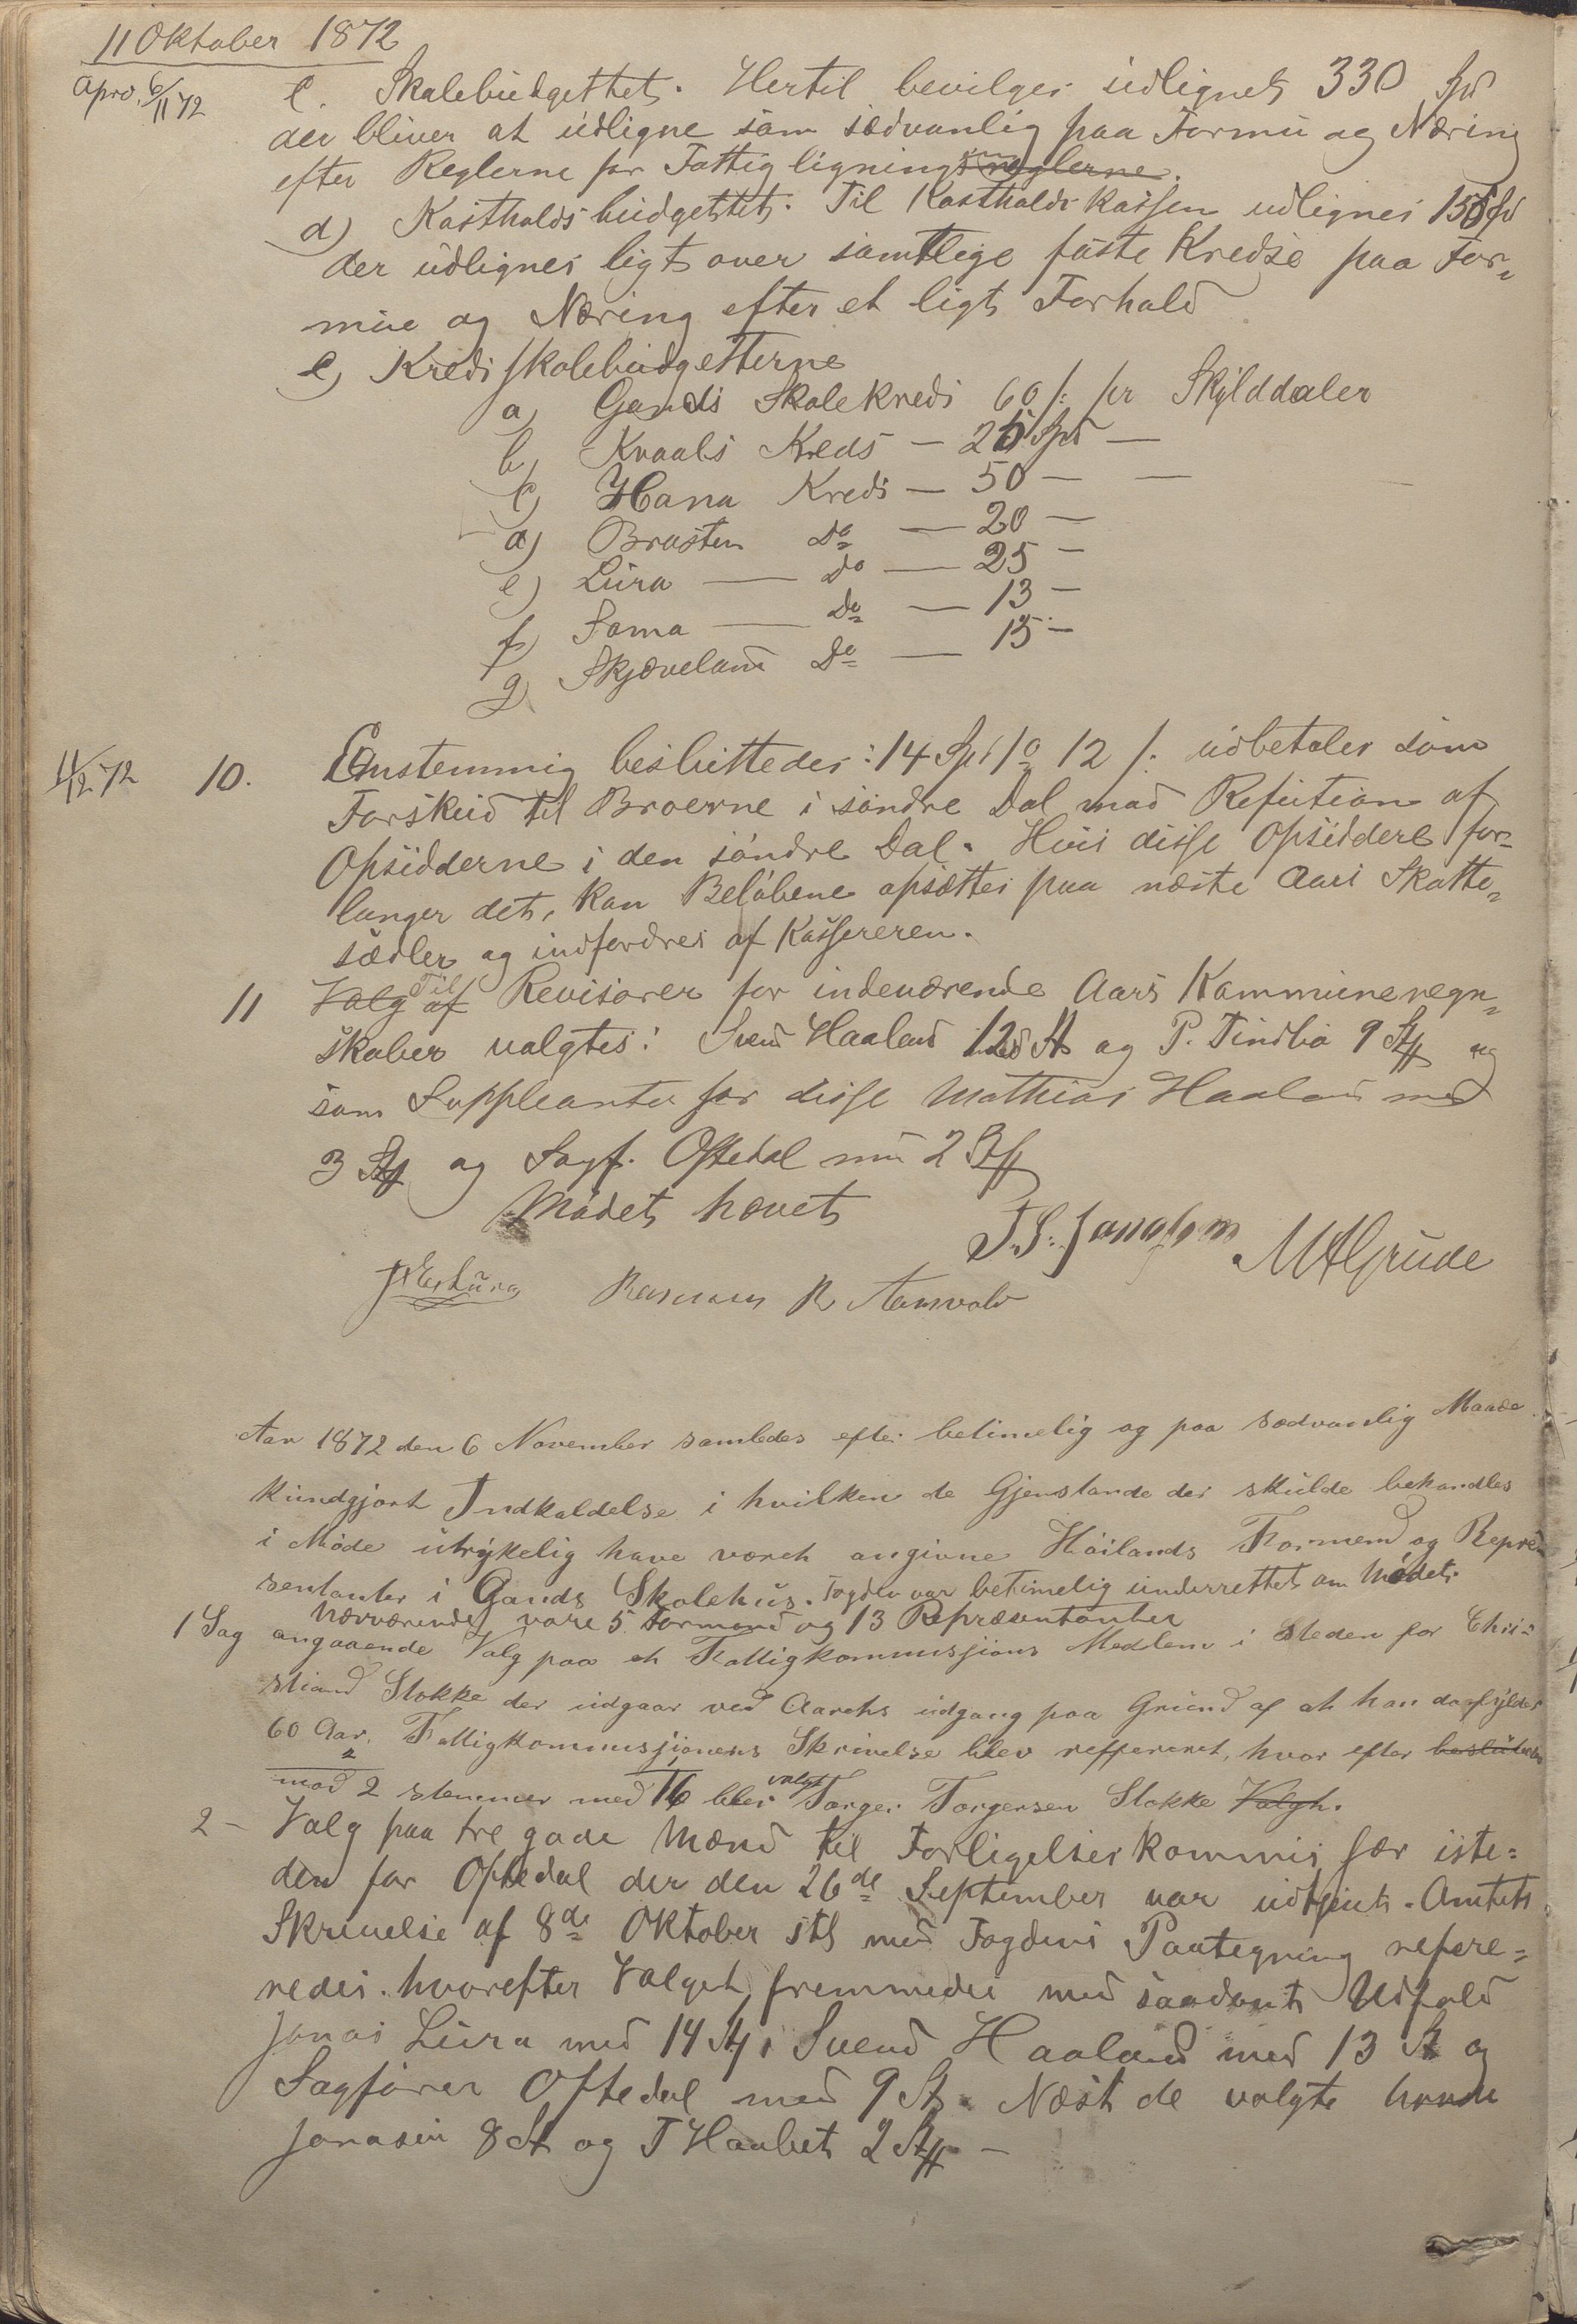 11 Oktober 1872
apro. 6/11 72
c. Skolebudgettet. Hertil bevilges udlignet 330 Spd
der bliver at udligne som sædvanlig paa Formu og Næring
efter Reglerne for Fattigligning
d) Kostholdsbudgettet. Til Kostholdskassen udlignes 150 Spd
der udlignes ligt over samtlige faste Kredse paa For-
mue og Næring efter et ligt Forhold
e) Kredsskolebudgetterne
a) Gands Skolekreds 60 s. pr Skylddaler
b) Kvaals Kreds — 26 —
c) Hana Kreds — 50 — —
d) Brasten Do — 20 —
e) Lura — Do — 25 —
f) Soma — Do — 13 —
g) Skjæveland Do — 15 —
11/12 72
10. Enstemmig besluttedes: 14 Spd 1o 12 s. udbetales som
Forskud til Broerne i søndre Dal mod Refution af
Opsidderne i den søndre Dal. Hvis disse Opsiddere for-
langer det, kan Beløbene opsættes paa næste Aars Skatte-
sedler og indfordres af Kassereren.
11 Valg af Til Revisorer for indeværende Aars Kommuneregn-
skaber valgtes: Svend Haaland 12 St og P. Tindbø 9 St og
som Suppleanter for disse Mathias Haaland med
3 St og Sagf. Oftedal med 2 St
Mødet hævet
T. S. Jonassen M A Grude
Rasmus R. Aamvold
Aar 1872 den 6 November samledes efter betimelig og paa sædvanlig Maade
kundgjort Indkaldelse i hvilken de Gjenstande der skulde behandles
i Møde utrykelig have været angivne Høilands Formend og Repræ-
sentanter i Gands Skolehus. Fogden var betimelig underrettet om Mødet.
Nærværende vare 5 Formend og 13 Repræsentanter
1 Sag angaaende Valg paa et Fattigkommissions Medlem i Steden for Chri-
stiand Stokke der udgaar ved Aarets udgang paa Grund af at han da fylder
60 Aar. Fattigkommissjonens Skrivelse blev refereret, hvor efter besluttedes
mod 2 stemmer med 16 blev valgt Torger Torgersen Stokke Valgt.
2 – Valg paa tre gode Mænd til Forligelseskommissær iste-
den for Oftedal der den 26de September var udtjent. Amtets
Skrivelse af 8de Oktober stl med Fogdens Paategning refere-
redes. hvorefter Valget fremmedes med saadant Udfald
Jonas Lura med 14 St, Svend Haaland med 13 St og
Sagfører Oftedal med 9 St. Næst de valgte havde
Jonasen 8 St og T Haabet 2 St –